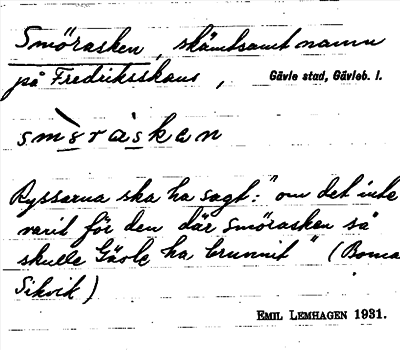 Smörasken, skämtsamt namn
på Fredriksskans, Gävle stad, Gävleb. l.
smöraskan
Ryssarna ska ha sagt: "om det inte
varit för den där smörasken så
skulle Gävle ha brunnit" (Boma
Sikvik)
EMIL LEMHAGEN 1931.